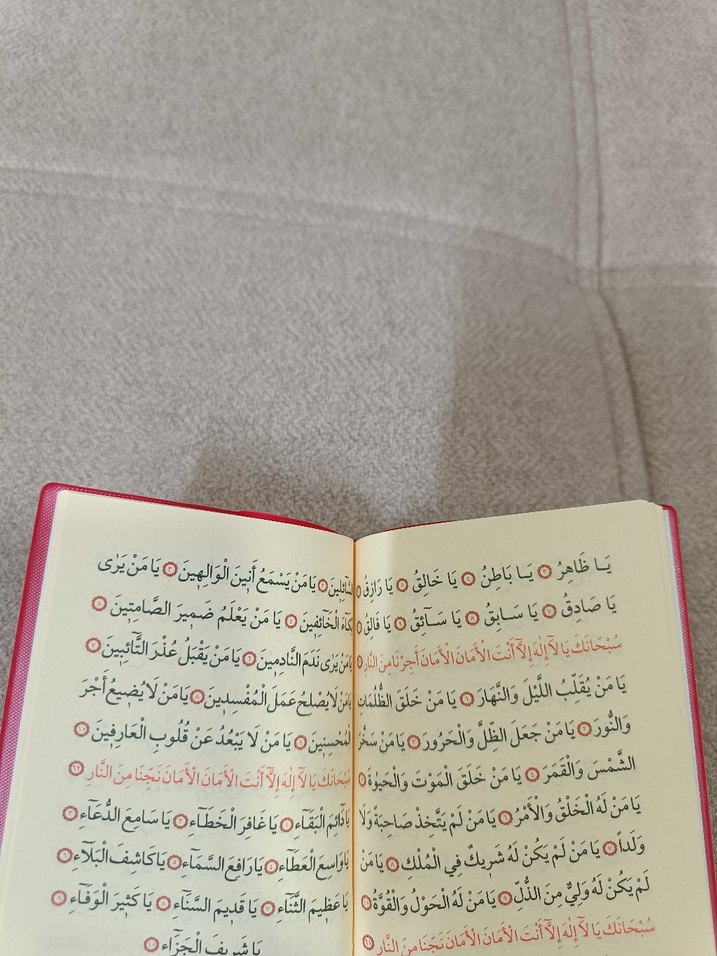 يَا ظَاهِرُ يَا بَاطِنُ يَا خَالِقُ يَا رَازِقُ
يَا صَادِقُ يَا سَابِقُ يَا سَآئِقُ يَا فَالِقُ
سُبْحَانَكَ يَا لَآ إِلٰهَ إِلَّآ أَنْتَ الْأَمَانَ الْأَمَانَ أَجِرْنَا مِنَ النَّارِ
يَا مَنْ يُقَلِّبُ اللَّيْلَ وَالنَّهَارَ يَا مَنْ خَلَقَ الظُّلُمَاتِ
وَالنُّورَ يَا مَنْ جَعَلَ الظِّلَّ وَالْحَرُورَ يَا مَنْ سَخَّرَ
الشَّمْسَ وَالْقَمَرَ يَا مَنْ خَلَقَ الْمَوْتَ وَالْحَيٰوةَ
يَا مَنْ لَهُ الْخَلْقُ وَالْأَمْرُ يَا مَنْ لَمْ يَتَّخِذْ صَاحِبَةً وَلَا
وَلَداً يَا مَنْ لَمْ يَكُنْ لَهُ شَرِيكٌ فِي الْمُلْكِ يَا مَنْ
لَمْ يَكُنْ لَهُ وَلِيٌّ مِنَ الذُّلِّ يَا مَنْ لَهُ الْحَوْلُ وَالْقُوَّةُ
سُبْحَانَكَ يَا لَآ إِلٰهَ إِلَّآ أَنْتَ الْأَمَانَ الْأَمَانَ نَجِّنَا مِنَ النَّارِ
السَّآئِلِينَ يَا مَنْ يَسْمَعُ أَنِينَ الْوَالِهِينَ يَا مَنْ يَرٰى
بُكَاءَ الْخَآئِفِينَ يَا مَنْ يَعْلَمُ ضَمِيرَ الصَّامِتِينَ
يَا مَنْ يَرٰى نَدَمَ النَّادِمِينَ يَا مَنْ يَقْبَلُ عُذْرَ التَّآئِبِينَ
يَا مَنْ لَا يُصْلِحُ عَمَلَ الْمُفْسِدِينَ يَا مَنْ لَا يُضِيعُ أَجْرَ
الْمُحْسِنِينَ يَا مَنْ لَا يَبْعُدُ عَنْ قُلُوبِ الْعَارِفِينَ
سُبْحَانَكَ يَا لَآ إِلٰهَ إِلَّآ أَنْتَ الْأَمَانَ الْأَمَانَ نَجِّنَا مِنَ النَّارِ
يَا دَآئِمَ الْبَقَآءِ يَا غَافِرَ الْخَطَآءِ يَا سَامِعَ الدُّعَآءِ
يَا وَاسِعَ الْعَطَآءِ يَا رَافِعَ السَّمَآءِ يَا كَاشِفَ الْبَلَآءِ
يَا عَظِيمَ الثَّنَآءِ يَا قَدِيمَ السَّنَآءِ يَا كَثِيرَ الْوَفَآءِ
يَا شَرِيفَ الْجَزَآءِ